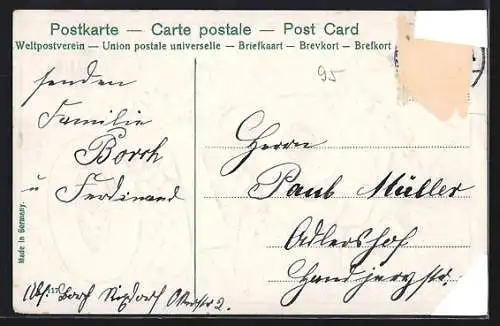 Postkarte — Carte postale — Post Card
Weltpostverein — Union postale universelle — Briefkaart — Brevkort — Brefkort
95
senden
Familie
Borch
u Ferdinand
Herrn
Paul Müller
Adlershof
Handjerystr.
Made in Germany.
Abs. Borch Rixdorf 2.